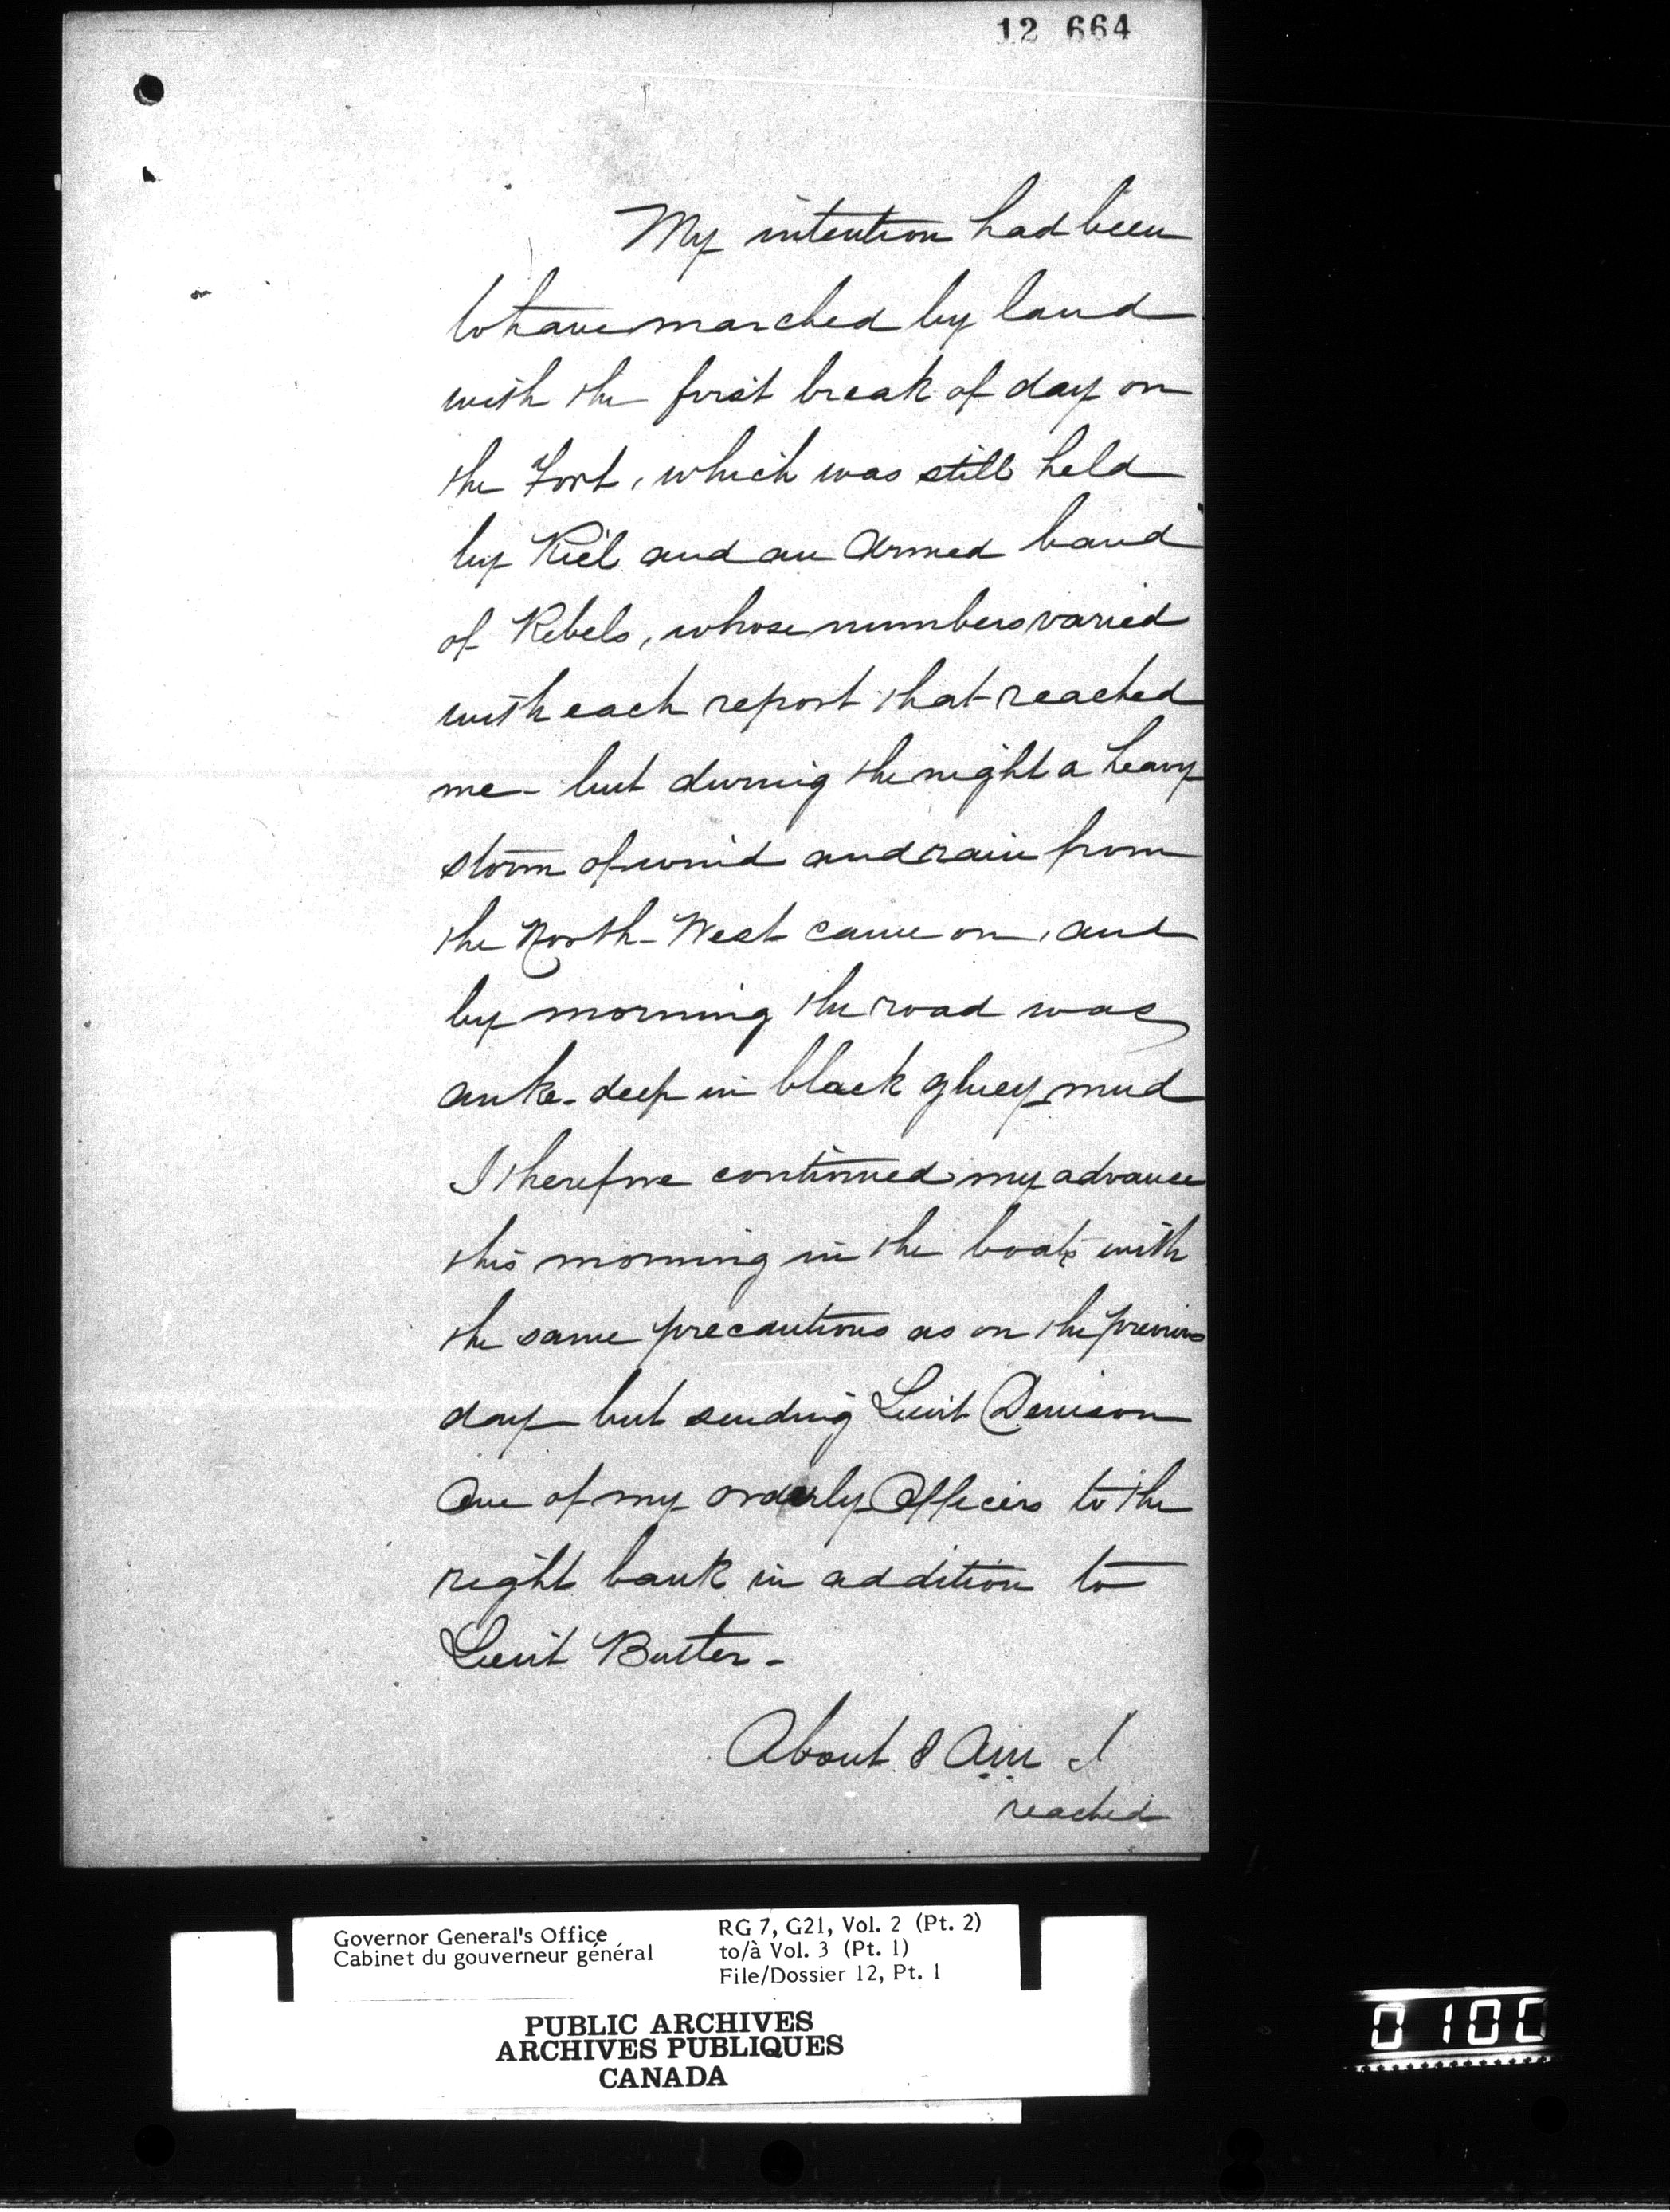 12 664
My intention had been
to have marched by land
with the first break of day on
the Fort, which was still held
by Riel and an Armed band
of Rebels, whose numbers varied
with each report that reached
me - but during the night a heavy
storm of wind and rain from
the North-West came on, and
by morning the road was
ankle-deep in black gluey mud
I therefore continued my advance
this morning in the boats with
the same precautions as on the previous
day but sending Lieut Denison
One of my orderly Officers to the
right bank in addition to
Lieut Butler -
About 8 Am I
reached
Governor General's Office
Cabinet du gouverneur général
RG 7, G21, Vol. 2 (Pt. 2)
to/à Vol. 3 (Pt. 1)
File/Dossier 12, Pt. 1
PUBLIC ARCHIVES
ARCHIVES PUBLIQUES
CANADA
0100